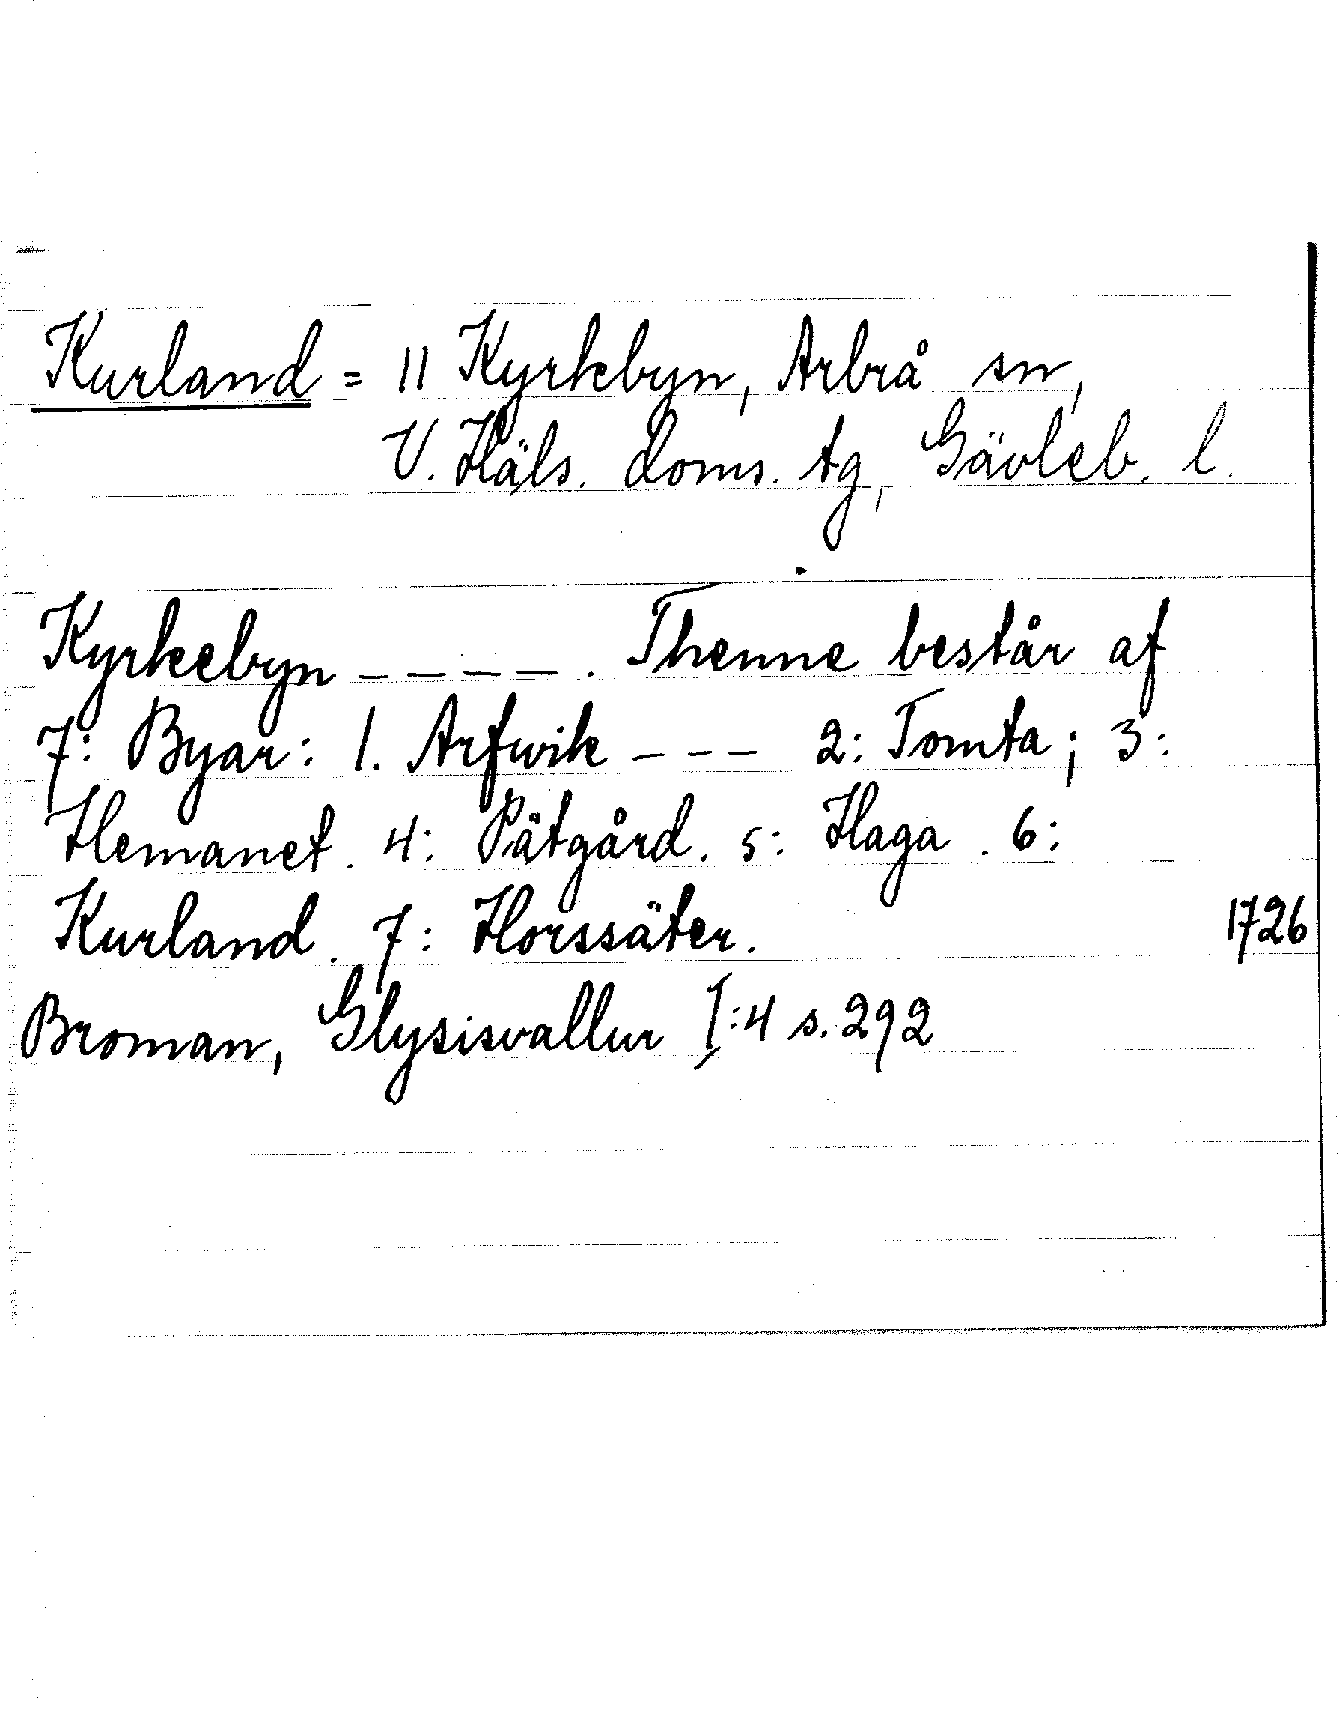 Kurland = 11 Kyrkbyn, Arbrå sn,
V. Häls. doms. tg, Gävleb. l.
Kyrkebyn ----. Thenne består af
7: Byar: 1. Arfwik --- 2: Tomta; 3:
Hemanet. 4: Pätgård. 5: Haga. 6:
Kurland. 7: Horssäter. 1726
Broman, Glysisvallur I:4 s. 292